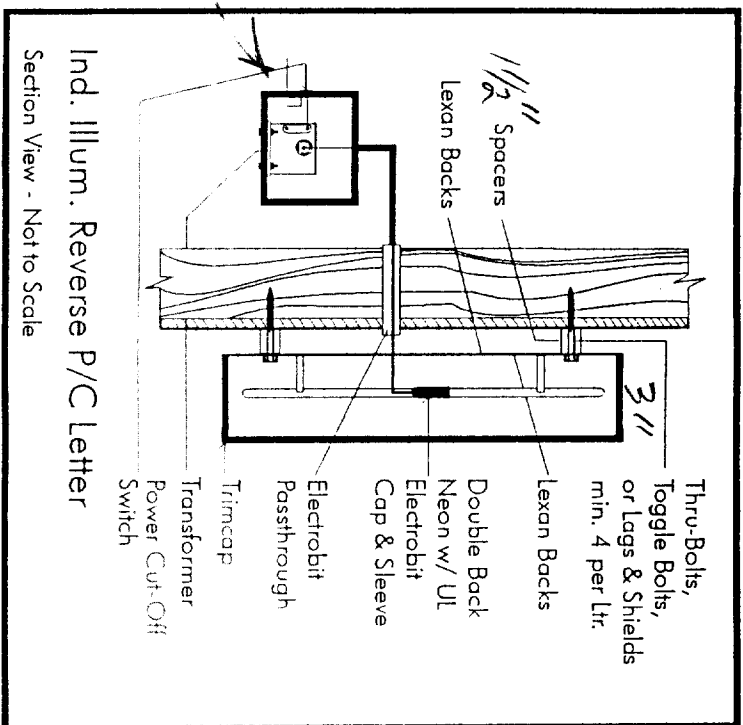 1 1/2" Spacers
Lexan Backs
3"
Thru-Bolts,
Toggle Bolts,
or Lags & Shields
min. 4 per Ltr.
Lexan Backs
Double Back
Neon w/ UL
Electrobit
Cap & Sleeve
Electrobit
Passthrough
Trimcap
Transformer
Power Cut-Off
Switch
Ind. Illum. Reverse P/C Letter
Section View - Not to Scale